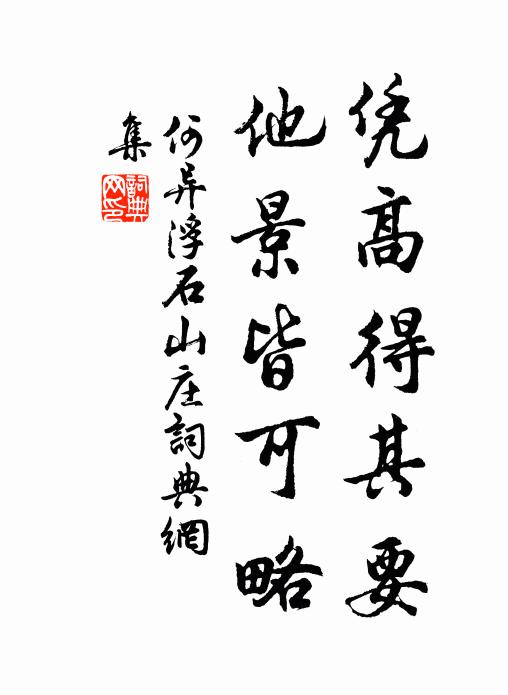 凭高得其要
他景皆可略
何异浮石山庄詞典網
集
詞典网印